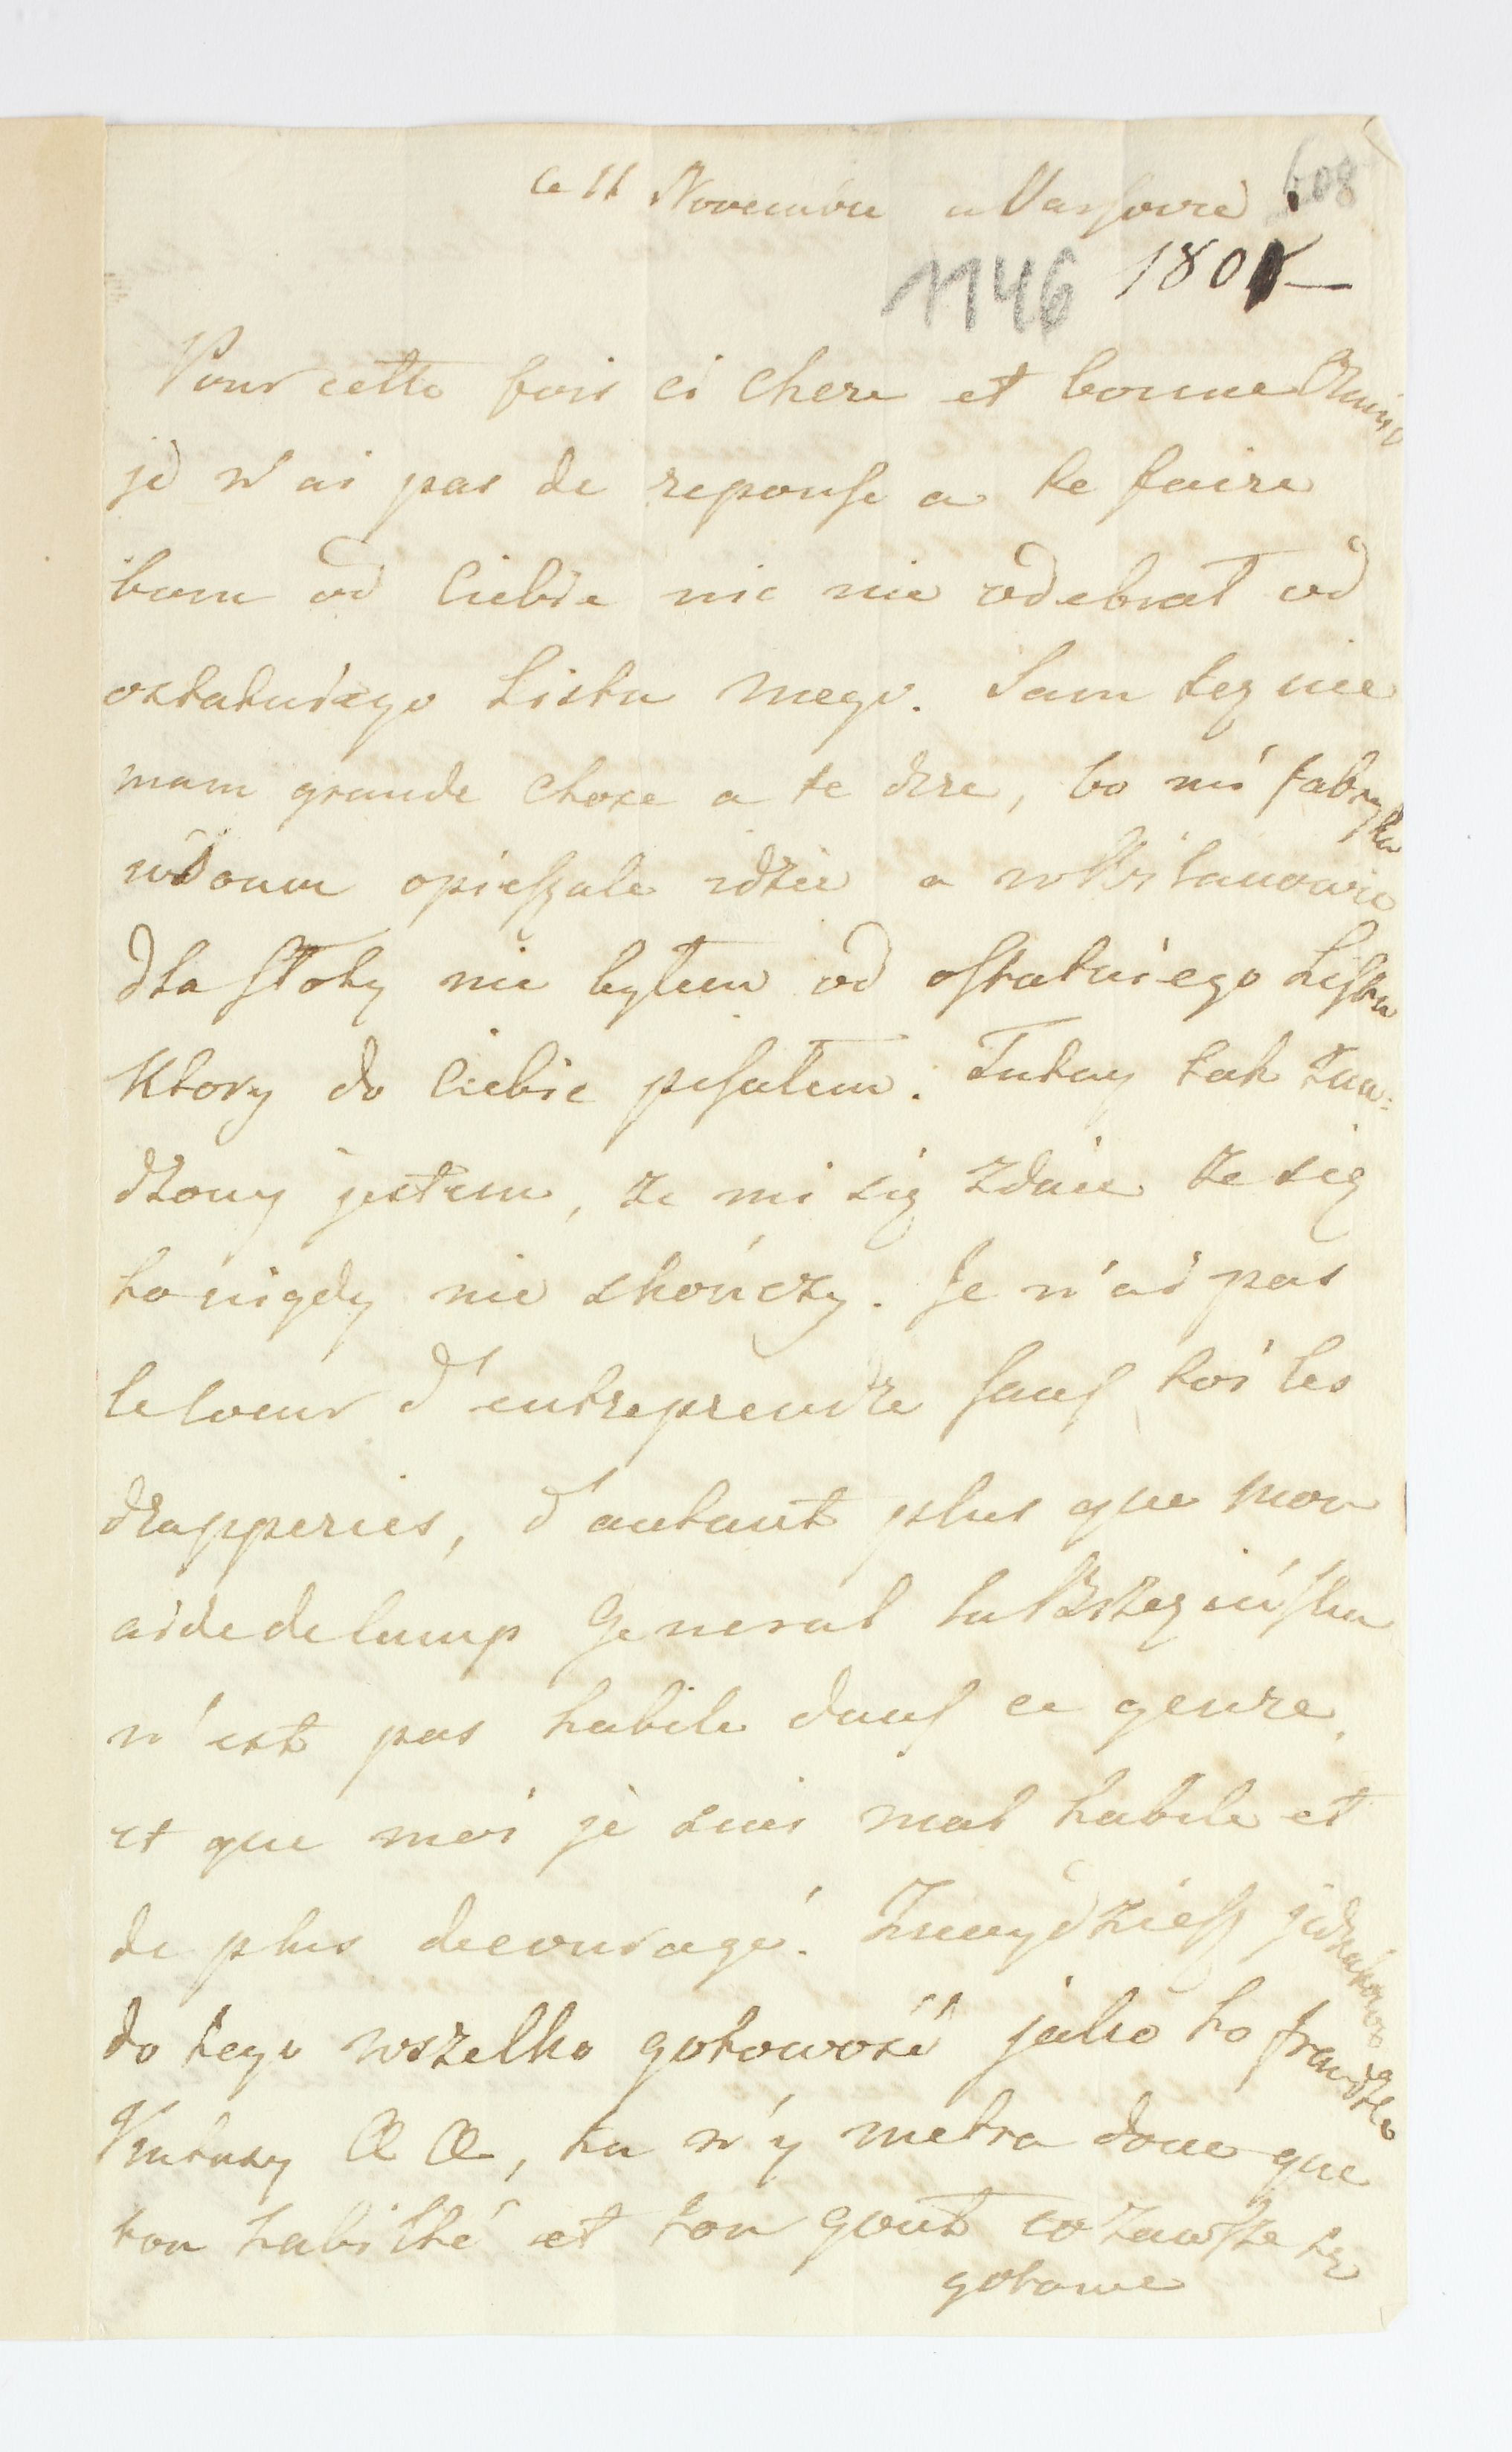 ce 11 Novembre a Varsovie
608
1146 1801
Pour cette fois ci chere et bonne
je n'ai pas de reponse a te faire
bom od Ciebie nic nie odebrał od
ostatniego Listu mego. Sam tez nie
mam grande chose a te dire, bo mi fabryka
w domu opieszale idzie a w Wilanowie
dla słoty nie byłem od ostatniego Listu
ktory do Ciebie pisałem. Tutay tak znu=
dzony jestem, ze mi się zdaie ze się
to nigdy nie skończy. Je n'ai pas
le coeur d'entreprendre sans toi les
drapperies, d'autant plus que mon
aide de camp General la
n'est pas habile dans ce genre,
et que moi je suis mal habile et
de plus decouragé. Znaydziesz jednakowoz
do tego wszelko gotowość jako to frandzle
Kutasy & &, tu n'y metra donc que
ton habilté et ton goût co zawsze są
gotowe